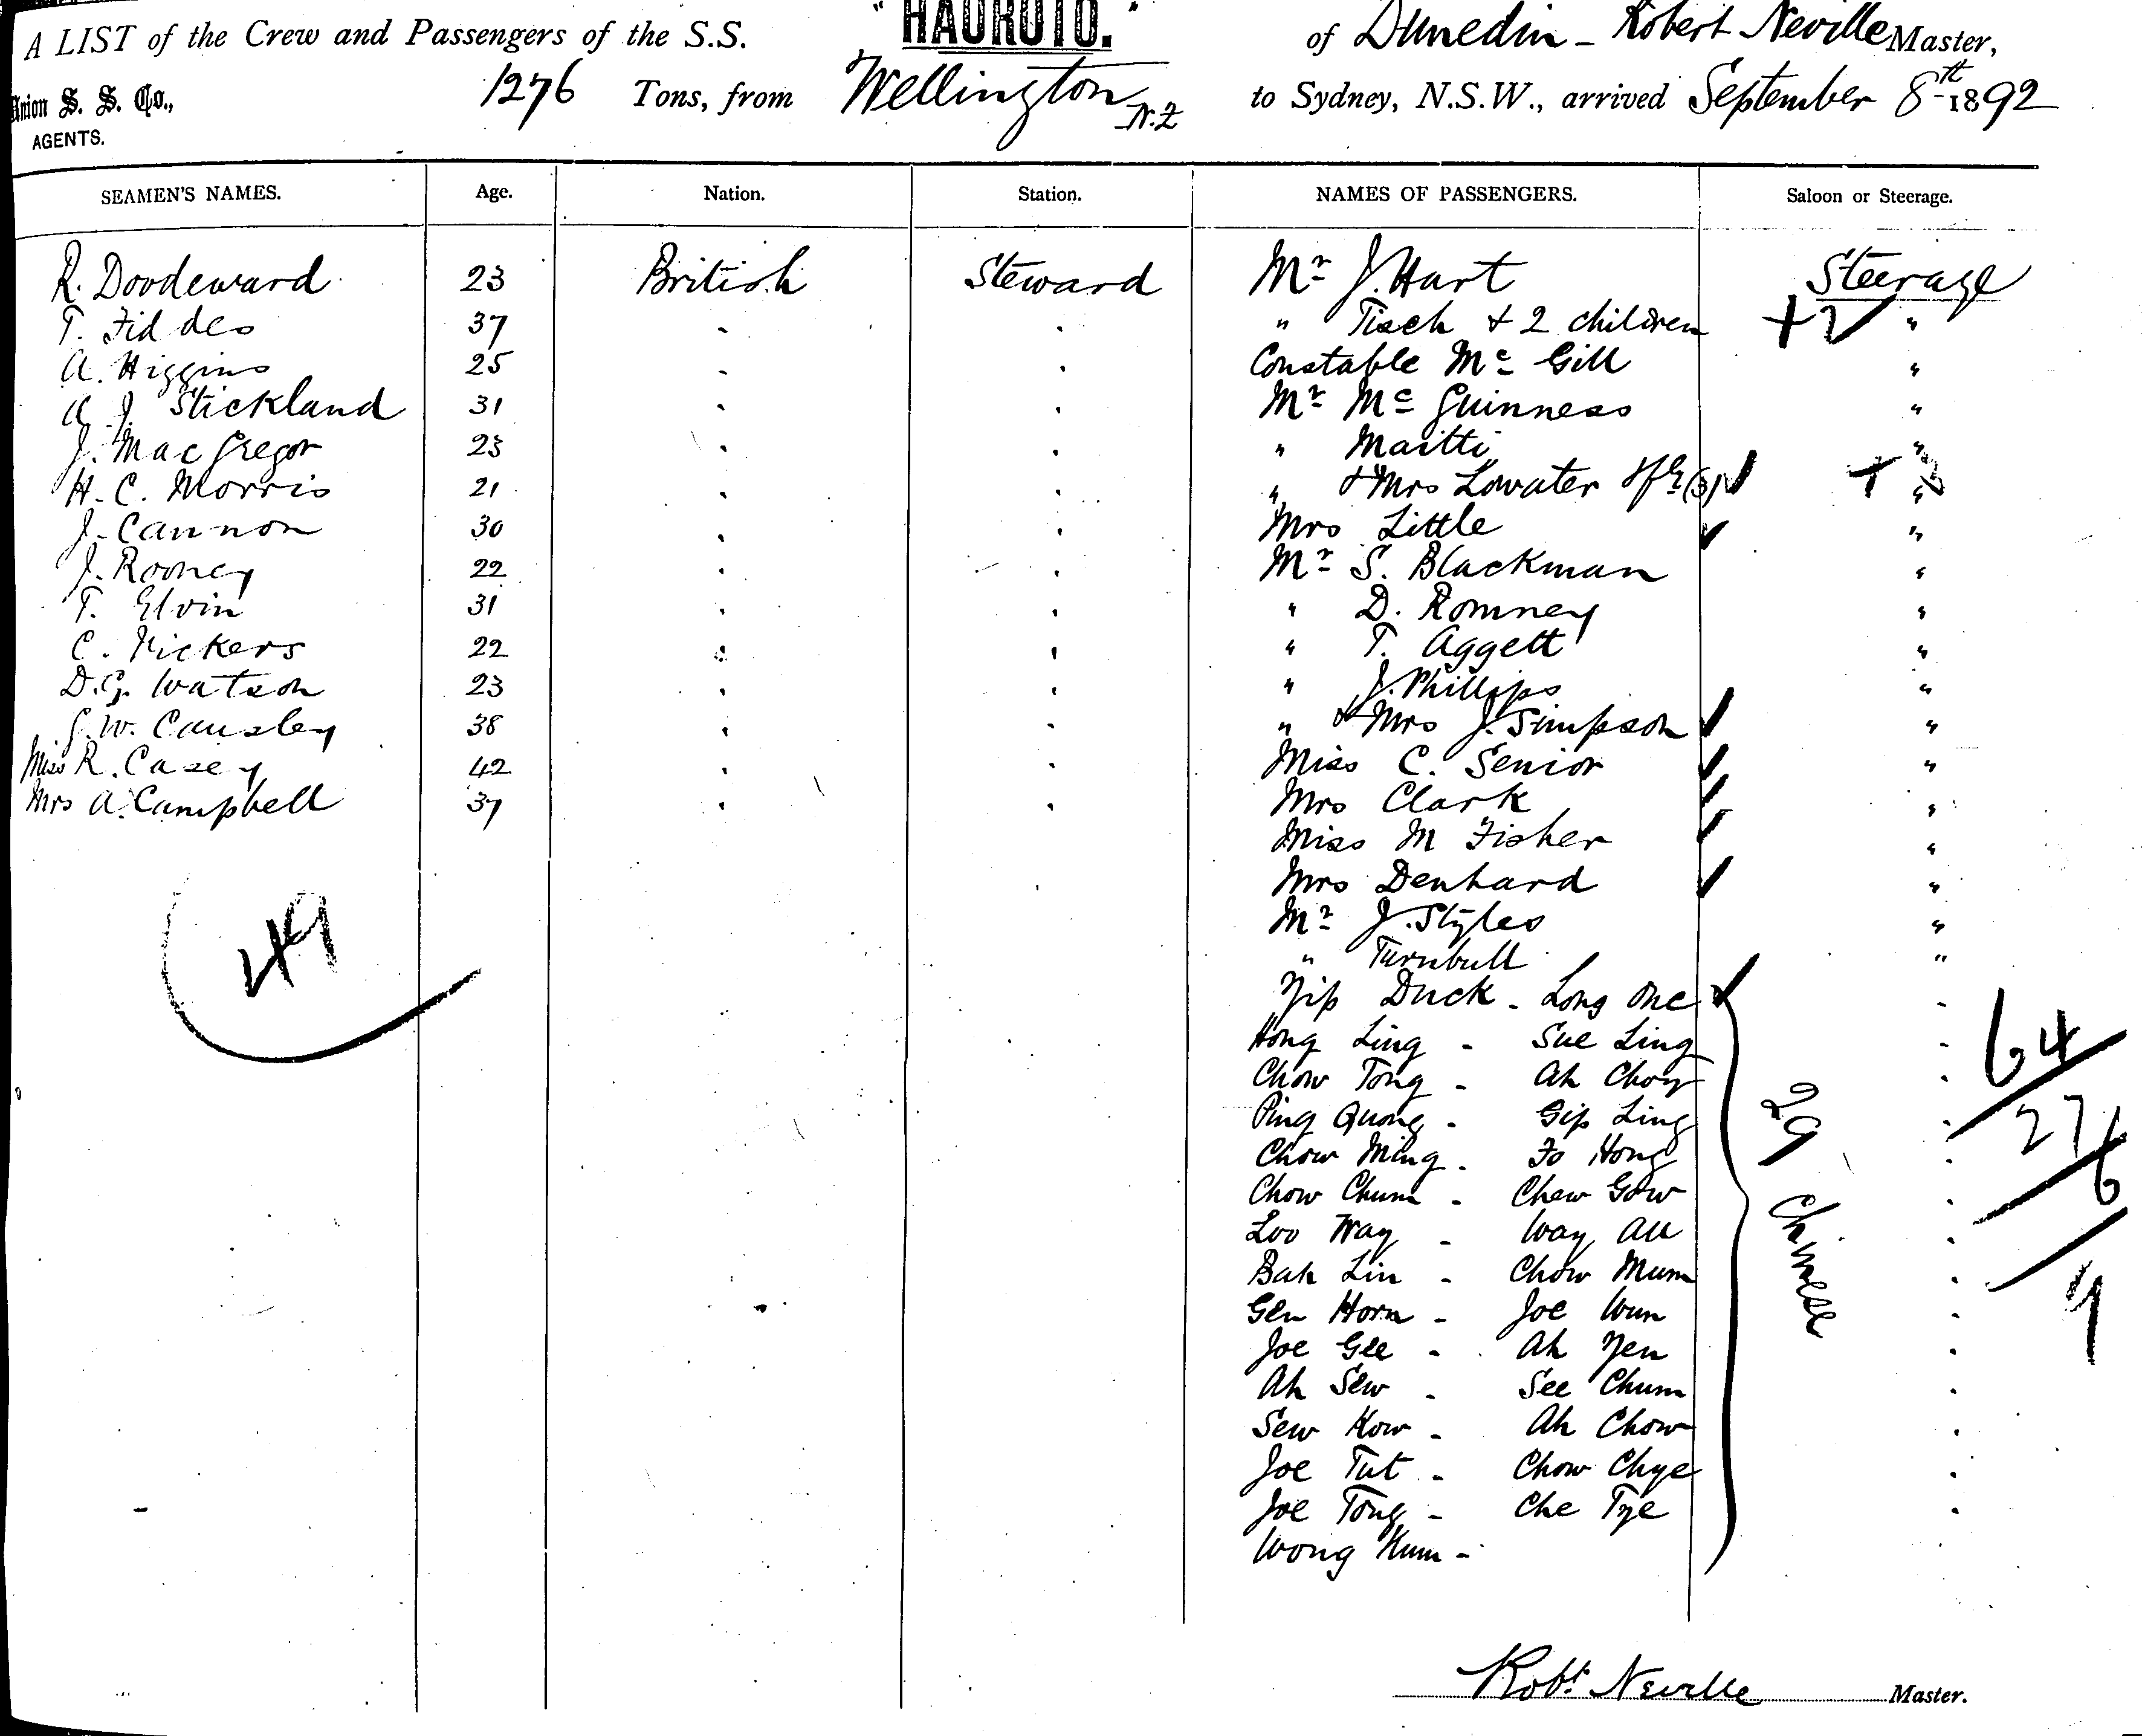 A LIST of the Crew and Passengers of the S.S. "HAUROTO." of Dunedin - Robert Neville Master,
Union S. S. Co., AGENTS. 1276 Tons, from Wellington N.Z to Sydney, N.S.W., arrived September 8th 1892
SEAMEN'S NAMES. Age. Nation. Station. NAMES OF PASSENGERS. Saloon or Steerage.
R. Doodeward 23 British Steward Mr J. Hart Steerage
T. Fiddes 37 " " " Tisch + 2 children + 2 "
A. Higgins 25 " " Constable Mc Gill "
A. J. Stickland 31 " " Mr Mc Guinness "
J. MacGregor 23 " " " Maitti "
H. C. Morris 21 " " " & Mrs Lowater (3) + 3 "
J. Cannon 30 " " Mrs Little "
J. Rooney 22 " " Mr S. Blackman "
T. Elvin 31 " " " D. Romney "
C. Vickers 22 " " " T. Aggett "
D.G. Watson 23 " " " J. Phillips "
G. W. Causley 38 " " " & Mrs J. Simpson "
Miss R. Casey 42 " " Miss C. Senior "
Mrs A. Campbell 37 " " Mrs Clark "
Miss M Fisher "
Mrs Denhard "
49 Mr J. Styles "
" Turnbull "
Yip Duck - Long One "
Hong Ling - Sue Ling " 64
Chow Tong - Ah Choy "
Ping Quong - Gip Ling " 276
Chow Ming - Fo Hong "
Chow Chum - Chew Gow "
Loo Way - Way All "
Bah Lin - Chow Mum "
Gen Horn - Joe Wun " 9
Joe Gee - Ah Yen "
Ah Sew - See Chum "
Sew How - Ah Chow "
Joe Tut - Chow Chye "
Joe Tong - Che Tye "
Wong Hum -
29 Chinese
Robt. Neville Master.